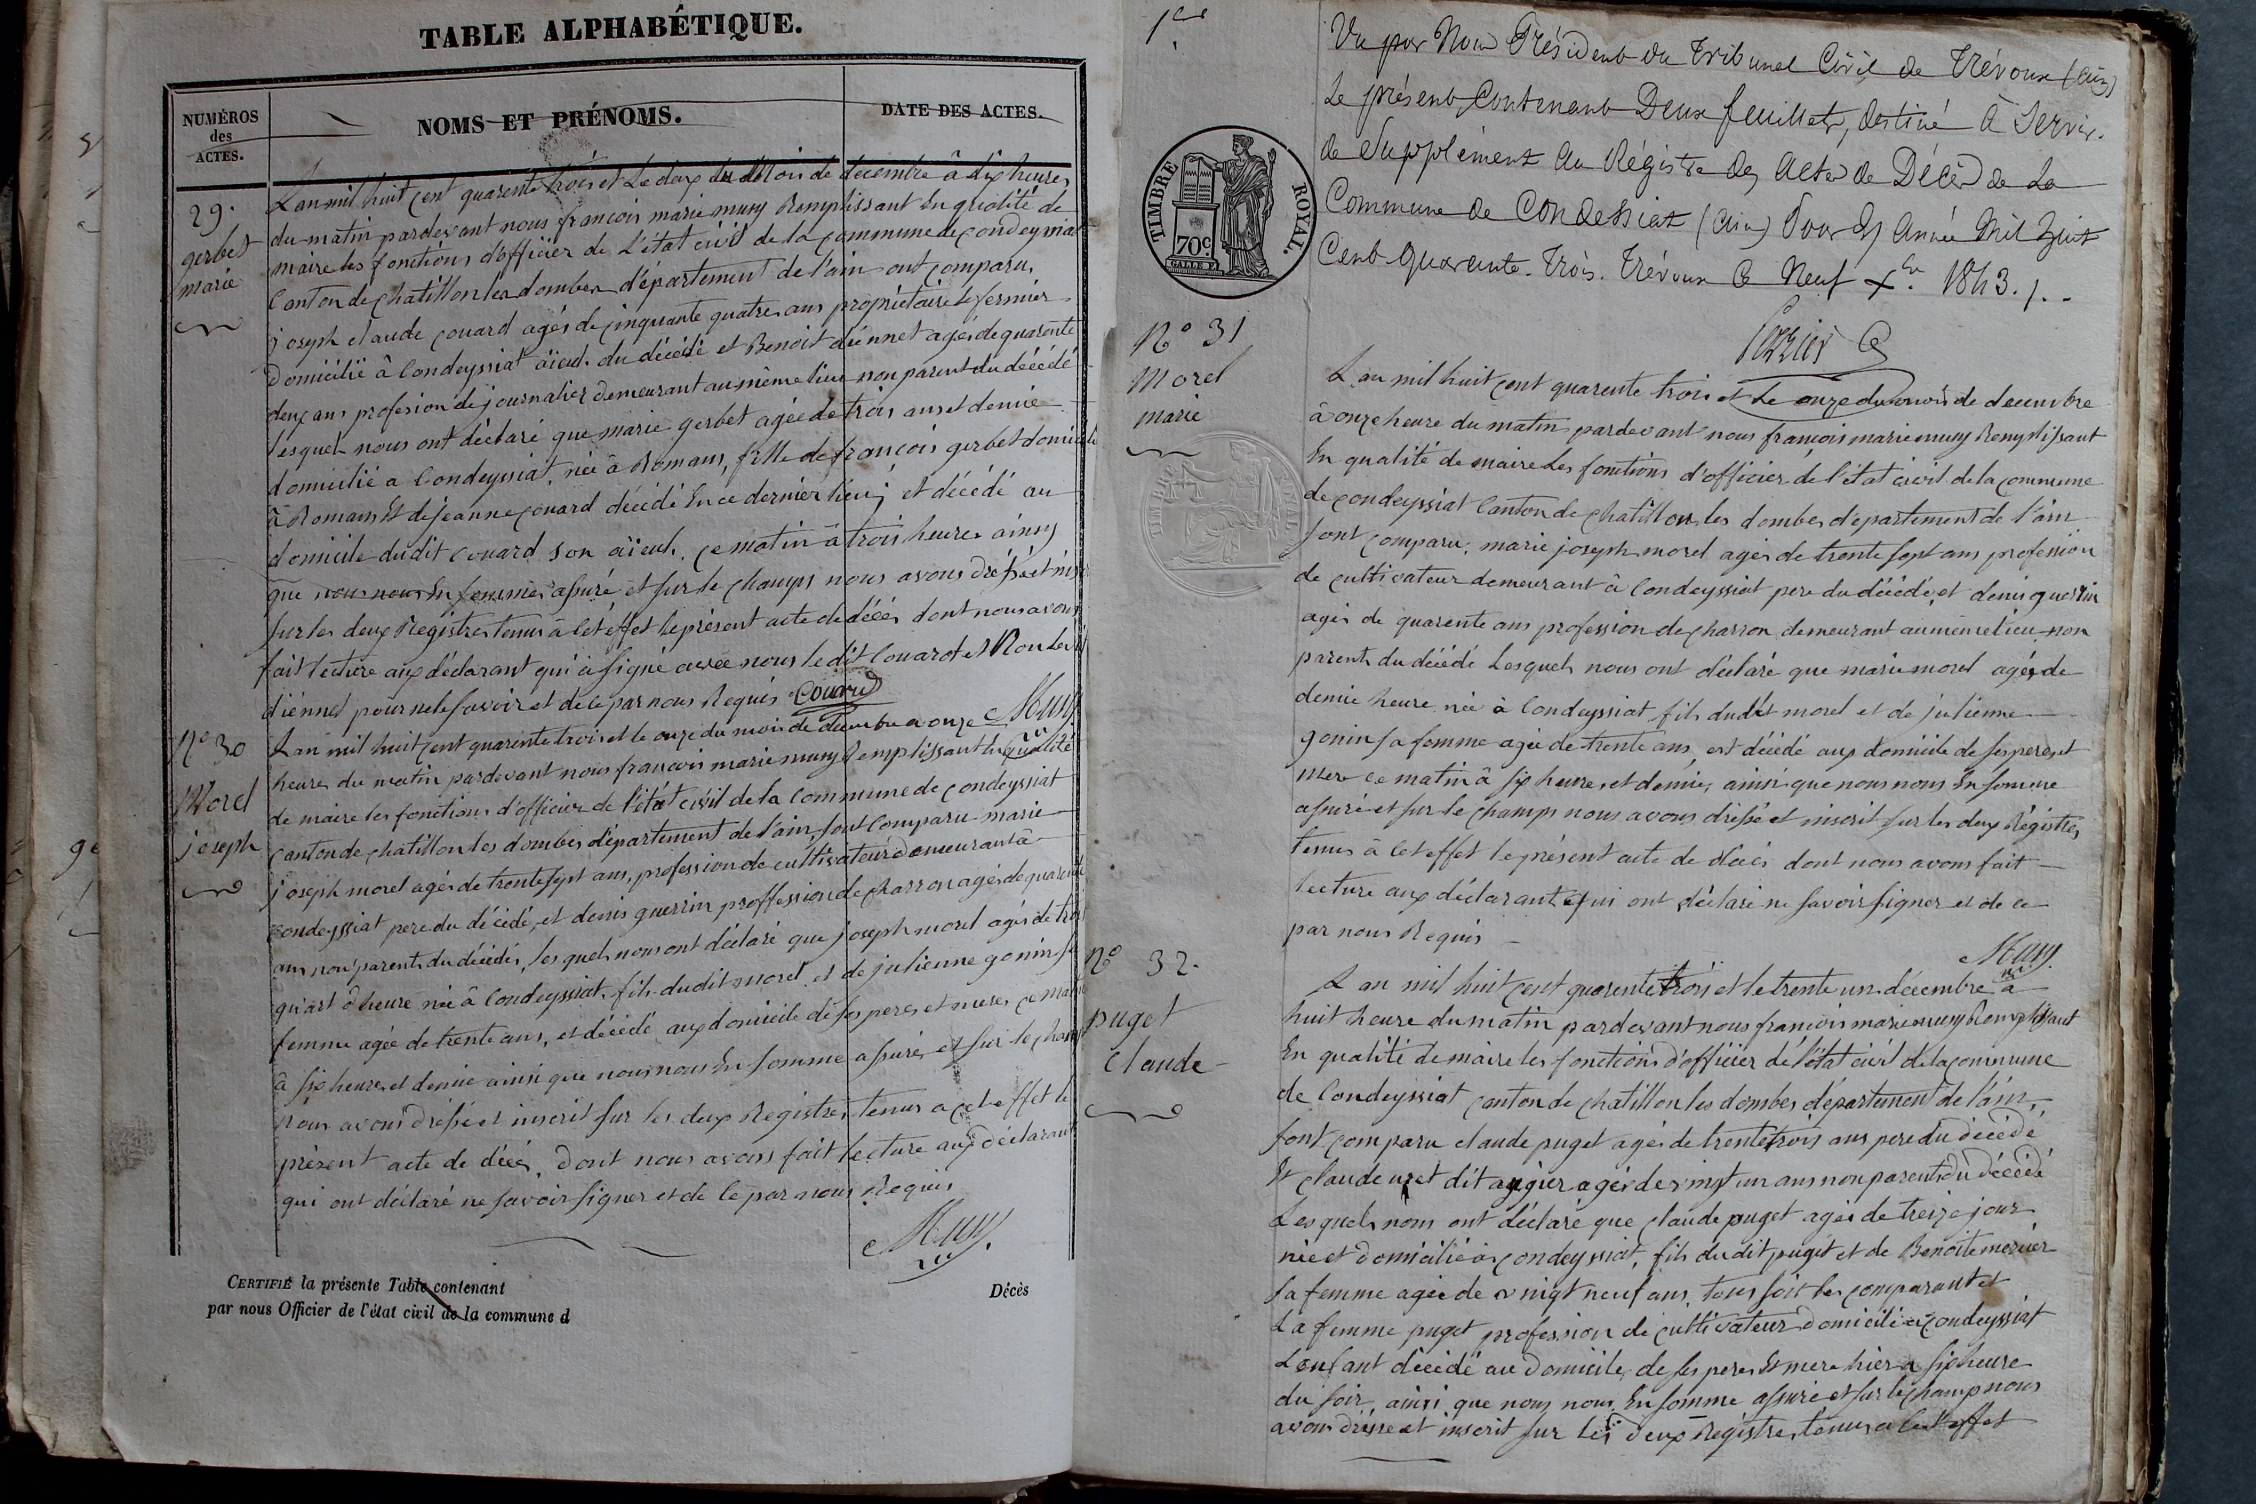 TABLE ALPHABÉTIQUE.
NUMÉROS
des
ACTES.
NOMS ET PRÉNOMS.
DATE DES ACTES.
29.
gerbet
marie
L'an mil huit cent quarente trois et Le deux du Mois de décembre â dix heures
du matin pardevant nous françois marie muny Remplissant En qualité de
maire les fonctions d'officier de L'état civil de la commune de Condeyssiat
Canton de chatillon les dombes département de l'ain ont comparu,
joseph claude couard agés de cinquante quatre ans propriétaire fermier
domicilié â Condeyssiat aïeul du décédé et Benoit diennet agés de quarente
deux ans profesion de journalier demeurant au même lieu non parent du décédé
lesquels nous ont déclaré que marie gerbet agée de trois ans et demie
domicilié a Condeyssiat, née â Romans, fille de françois gerbet domicilié
â Romans Et de jeanne couard décédé En ce dernier lieu; et décédé au
domicile dudit couard son aïeul, ce matin â trois heures ainsy
que nous nous En somme assuré et sur le champs nous avons dréssé et
sur les deux Régistres tenus â cet effet le présent acte de décés dont nous avons
fait lecture aux déclarant qui â signé avec nous le dit Couard et Non Le dit
diénnet pour ne le savoir et de ce par nous Requis Couard
Muny
N° 30
Morel
joseph
L'an mil huit cent quarente trois et le onze du mois de décembre a onze
heures du matin pardevant nous françois marie muny Remplissant En qualité
de maire les fonctions d'officier de l'état civil de la Commune de Condeyssiat
Canton de chatillon les dombes département de l'ain, sont Comparu marie
joseph morel agés de trente sept ans, profession de cultivateur demeurant â
Condeyssiat pere du décédé, et denis guerrin proffession de charron agés de quarente
ans non parents du décédés, les quels nous ont déclaré que joseph morel agés de trois
qu'art d'heure née â Condeyssiat, fils dudit morel, et de julienne gonin sa
femme agée de trente ans, et décédé aux domicile de ses peres et meres ce matin
â six heures et demie ainsi que nous nous En somme assurés et sur le champ
nous avons dréssé et inscrit sur les deux Registres tenus a cet effet le
présent acte de décés, dont nous avons fait lecture aux déclarant
qui ont déclaré ne savoir signer et de ce par nous Requis
Muny
CERTIFIÉ la présente Table contenant
Décès
par nous Officier de l'état civil de la commune d
1er
Vu par Nous Président du Tribunal Civil de Trévoux (Ain)
Le présent Contenant Deux feuillets, destiné à Servir
de Supplément au Régistre des Actes de Décès de La
Commune de Condessiat (Ain) Pour l'Année Mil huit
Cent Quarante-Trois. Trévoux le Neuf Xbre 1843.
TIMBRE ROYAL.
70c
N° 31
Morel
marie
L'an mil huit cent quarente trois et Le onze du mois de décembre
â onze heure du matin pardevant nous françois marie muny Remplissant
En qualité de maire Les fonctions d'officier de l'état civil de la commune
de condeyssiat Canton de chatillon les dombes département de l'ain
sont comparu, marie joseph morel agés de trente sept ans profession
de cultivateur demeurant â Condeyssiat pere du décédé, et denis guerrin
agés de quarente ans profession de charron, demeurant au même lieu non
parents du décédé Lesquels nous ont déclaré que marie morel agés de
demie heure née â Condeyssiat fils dudit morel et de julienne
gonin sa femme agée de trente ans, est décédé aux domicile de ses peres et
mere ce matin â six heures et demie, ainsi que nous nous En somme
assuré et sur le champs nous avons dréssé et inscrit sur les deux Régistres
tenus â cet effet le présent acte de décés dont nous avons fait
lecture aux déclarant qui ont déclaré ne savoir signer et de ce
par nous Requis
Muny
N° 32.
puget
claude
L'an mil huit cent quarente trois et le trente un décembre â
huit heure du matin pardevant nous françois marie muny Remplissant
En qualité de maire les fonctions d'officier de l'état civil de la commune
de Condeyssiat canton de chatillon les dombes département de l'ain,
sont comparu claude puget agés de trente trois ans pere du décédé
Et claude dit agés de vingt un ans non parents du décédé
Lesquels nous ont déclaré que claude puget agés de treize jour
née et domicilié â condeyssiat, fils dudit puget et de Benoite mercier
sa femme agée de vingt neuf ans, tous soit les comparant et
La femme puget profession de cultivateur domicilié a condeyssiat
L'enfant décédé au domicile de ses peres Et mere hier a six heure
du soir, ainsi que nous nous En somme assuré et sur le champ nous
avons dressé et inscrit sur les deux Régistres tenus a cet effet